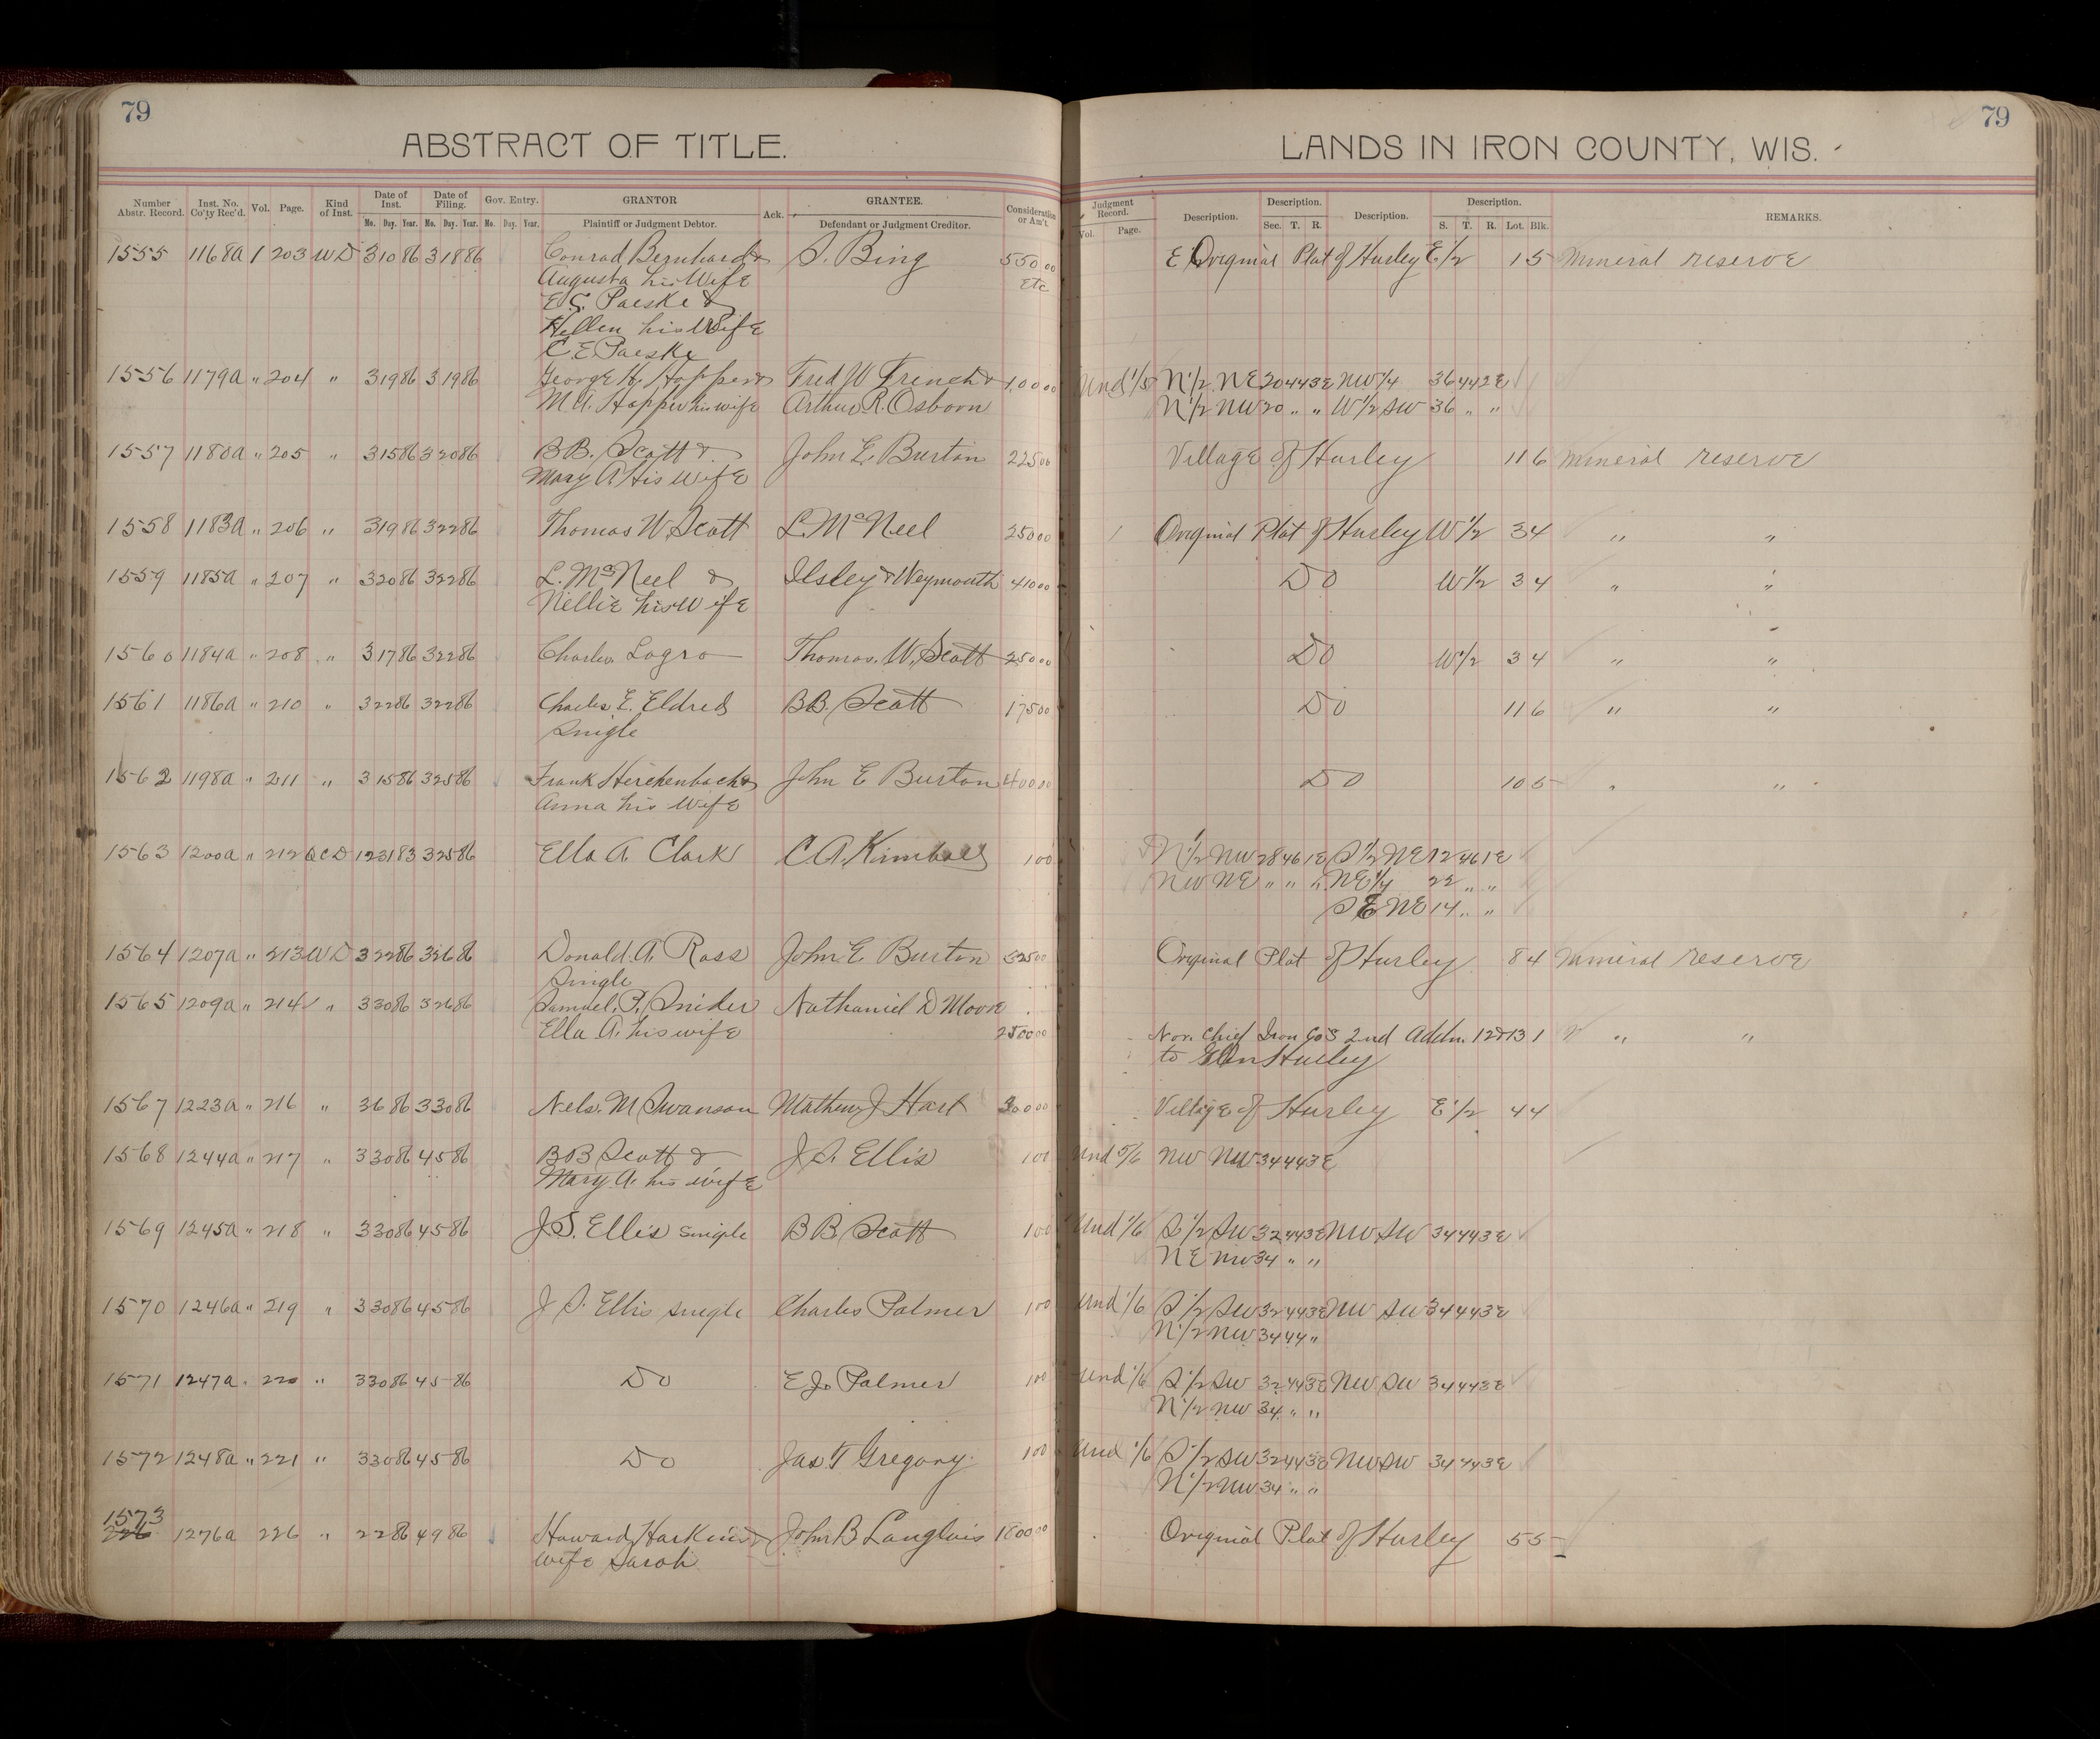 79
79
ABSTRACT OF TITLE.
LANDS IN IRON COUNTY, WIS.
Number Abstr. Record. Inst. No. Co'ty Rec'd. Vol. Page. Kind of Inst. Date of Inst. Mo. Day. Year. Date of Filing. Mo. Day. Year. Gov. Entry. Mo. Day. Year. GRANTOR Plaintiff or Judgment Debtor. Ack. GRANTEE. Defendant or Judgment Creditor. Consideration or Am't. Judgment Record. Vol. Page. Description. Description. Sec. T. R. Description. Description. S. T. R. Lot. Blk. REMARKS.
1555 1168a 1 203 WD 3 10 86 3 18 86 Conrad Bernhard & S. Bing 550 00 E Original Plat of Hurley E 1/2 1 5 Mineral reserve
Augusta his Wife Etc
E.C. Paeske &
Hellen his Wife
C.E. Paeske
1556 1179a " 204 " 3 19 86 3 19 86 George K. Hopper & Fred W French & 1,00 00 Und 1/5 N 1/2 NE 20 44 3E NW 1/4 36 44 2E
M.A. Hopper his wife Arthur R. Osborn N 1/2 NW 20 " " W 1/2 SW 36 " "
1557 1180a " 205 " 3 15 86 3 20 86 B.B. Scott & John E. Burton 225 00 Village of Hurley 11 6 Mineral reserve
Mary A His Wife
1558 1183a " 206 " 3 19 86 3 22 86 Thomas W. Scott L. McNeel 250 00 Original Plat of Hurley W 1/2 3 4 " "
1559 1185a " 207 " 3 20 86 3 22 86 L. McNeel & Ilsley & Weymouth 410 00 Do W 1/2 3 4 " "
Nellie his Wife
1560 1184a " 208 " 3 17 86 3 22 86 Charles Logro Thomas. W. Scott 250 00 Do W 1/2 3 4 " "
1561 1186a " 210 " 3 22 86 3 22 86 Charles E. Eldred B.B. Scott 175 00 Do 11 6 " "
Single
1562 1198a " 211 " 3 15 86 3 25 86 Frank Herchenbach & John E Burton 400 00 Do 10 5 " "
Anna his Wife
1563 1200a " 212 QCD 12 31 83 3 25 86 Ella A Clark C.A. Kimball 1 00 N 1/2 NW 28 46 1E S 1/2 NE 12 46 1E
NW NE " " " NE 1/4 22 " "
SE NE 14 " "
1564 1207a " 213 WD 3 22 86 3 26 86 Donald. A. Ross John E Burton 325 00 Original Plat of Hurley 8 4 Mineral reserve
Single
1565 1209a " 214 " 3 30 86 3 26 86 Samuel. P. Snider Nathaniel D Moore
Ella A. his wife 250 00 Nor. Chief Iron Co's 2nd Addn. 12&13 1 " "
to Glen Hurley
1567 1223a " 216 " 3 6 86 3 30 86 Nels. M Swanson Mathew J Hart 300 00 Village of Hurley E 1/2 4 4
1568 1244a " 217 " 3 30 86 4 5 86 B B Scott & J.S. Ellis 1 00 Und 5/6 NW NW 34 44 3E
Mary. A. his wife
1569 1245a " 218 " 3 30 86 4 5 86 J.S. Ellis single B B. Scott 1 00 Und 1/6 S 1/2 SW 32 44 3E NW SW 34 44 3E
NE NW 34 " "
1570 1246a " 219 " 3 30 86 4 5 86 J S. Ellis single Charles Palmer 1 00 Und 1/6 S 1/2 SW 32 44 3E NW SW 34 44 3E
N 1/2 NW 34 44 "
1571 1247a " 220 " 3 30 86 4 5 86 Do E Jo Palmer 1 00 Und 1/6 S 1/2 SW 32 44 3E NW SW 34 44 3E
N 1/2 NW 34 " "
1572 1248a " 221 " 3 30 86 4 5 86 Do Jas T Gregory 1 00 Und 1/6 S 1/2 SW 32 44 3E NW SW 34 44 3E
N 1/2 NW 34 " "
1573
226 1276a 226 " 2 2 86 4 9 86 Howard Harkins & John B Langlois 1800 00 Original Plat of Hurley 5 5
wife Sarah